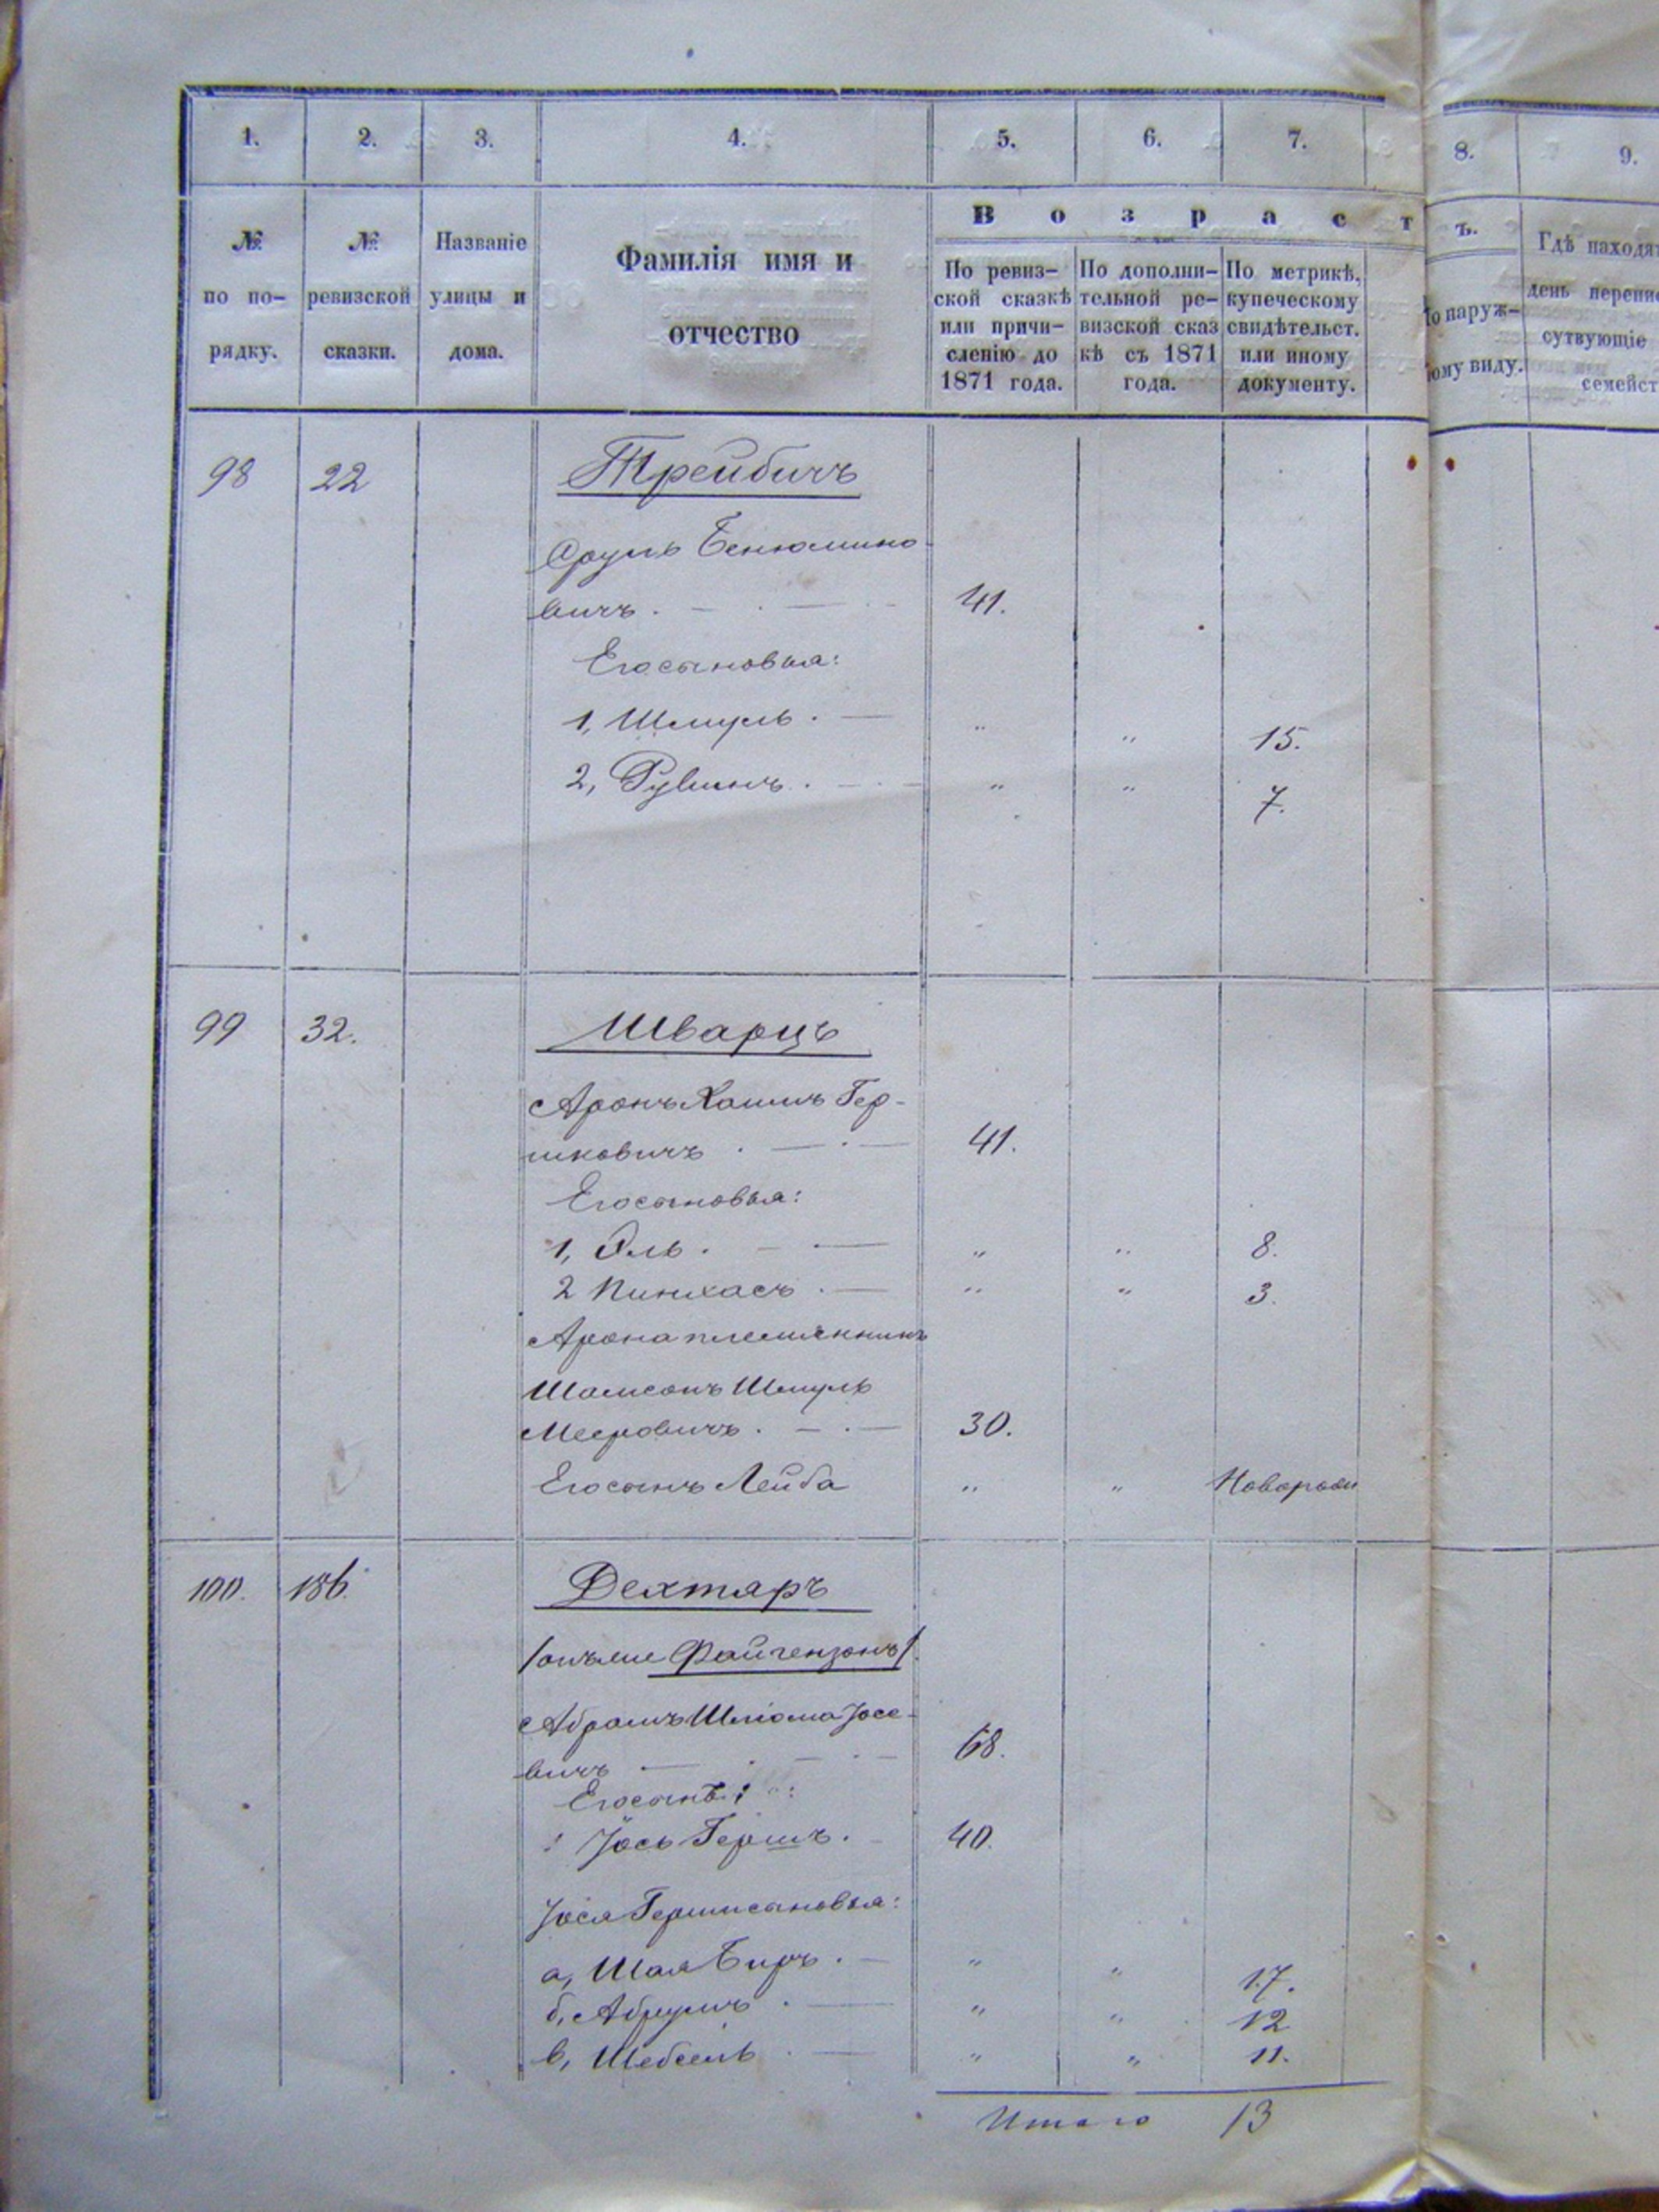 1. 2. 3. 4. 5. 6. 7. 8. 9.
№ по по-рядку.
№ ревизской сказки.
Названіе улицы и дома.
Фамилія имя и отчество
Возрастъ.
По ревиз-ской сказкѣ или причи-сленію до 1871 года.
По дополни-тельной ре-визской сказкѣ съ 1871 года.
По метрикѣ, купеческому свидѣтельст. или иному документу.
По наруж-ному виду.
Гдѣ находя
день перепис
сутвующіе
семейст
98 22 Трейбичъ
Сруль Бенюмино-
вичъ. 41.
Его сыновья:
1, Шмуль. " " 15.
2, Рувинъ. " " 7.
99 32. Шварцъ
Аронъ Хаимъ Гер-
шковичъ. 41.
Его сыновья:
1, Эль. " " 8.
2 Пинхасъ. " " 3.
Арона племянникъ
Шамсонъ Шмуль
Мееровичъ. 30.
Его сынъ Лейба " " Новорожд
100. 186. Дехтяръ
/онъ же Файгензонъ/.
Абрамъ Шліома Іосе-
вичъ 68.
Его сынъ:
Іось Гершъ. 40.
Іося Герша сыновья:
а, Шая Беръ. " " 17.
б, Абрумъ. " " 12
в, Шебсель. " " 11.
Итого 13